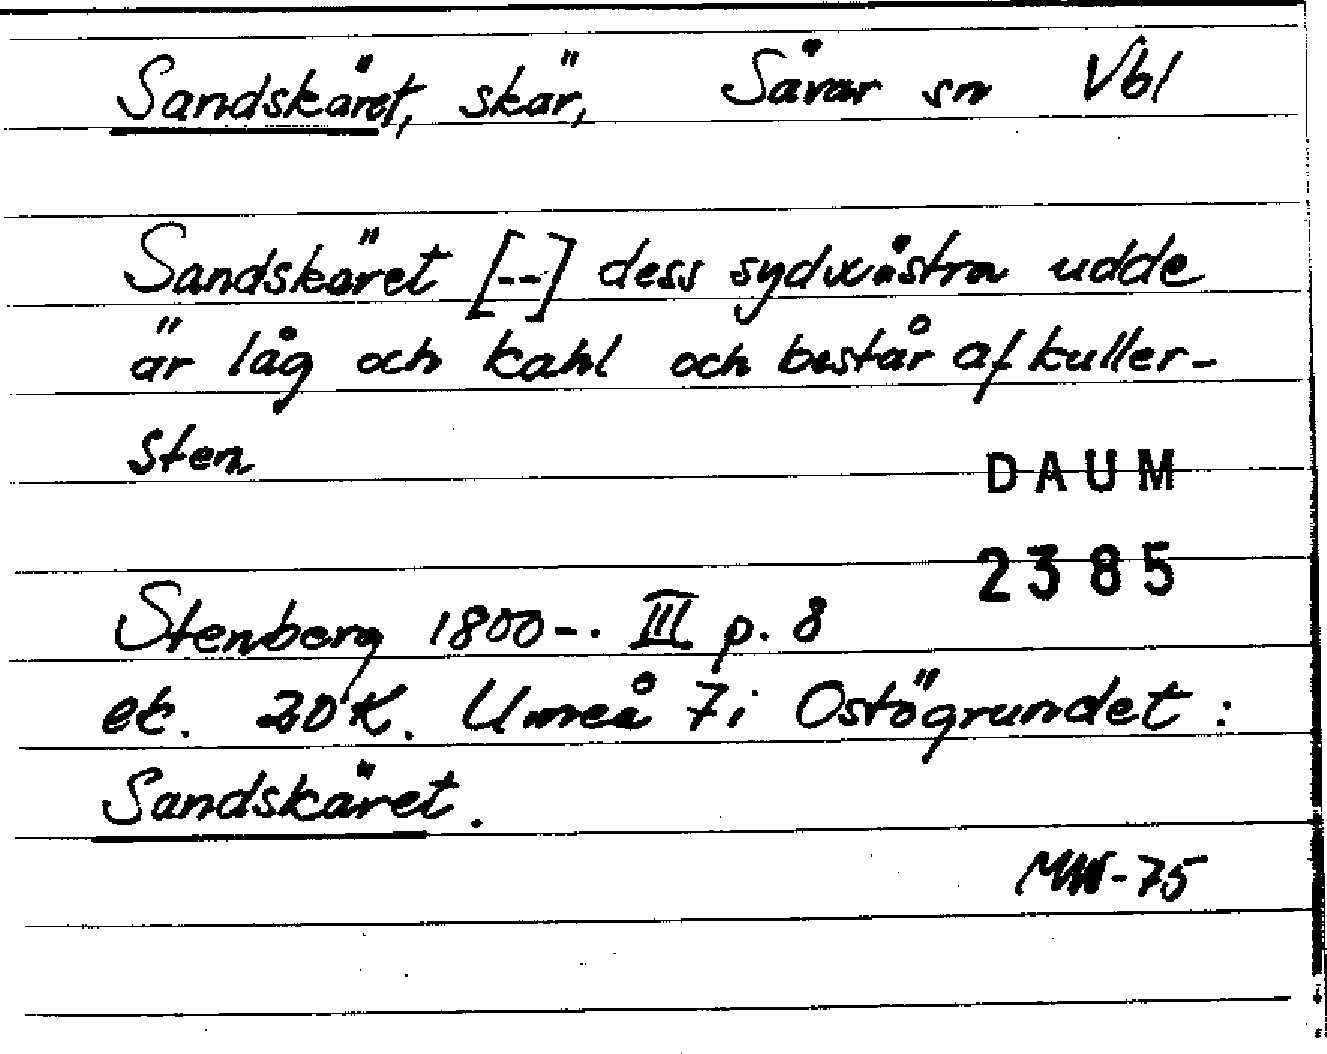 Sandskäret, skär, Sävar sn Vbl
Sandskäret [--] dess sydvästra udde
är låg och kahl och består af kuller-
sten
DAUM
2385
Stenberg 1800-. III p. 8
ek. 20 K. Umeå 7i Ostögrundet:
Sandskäret.
MW-75